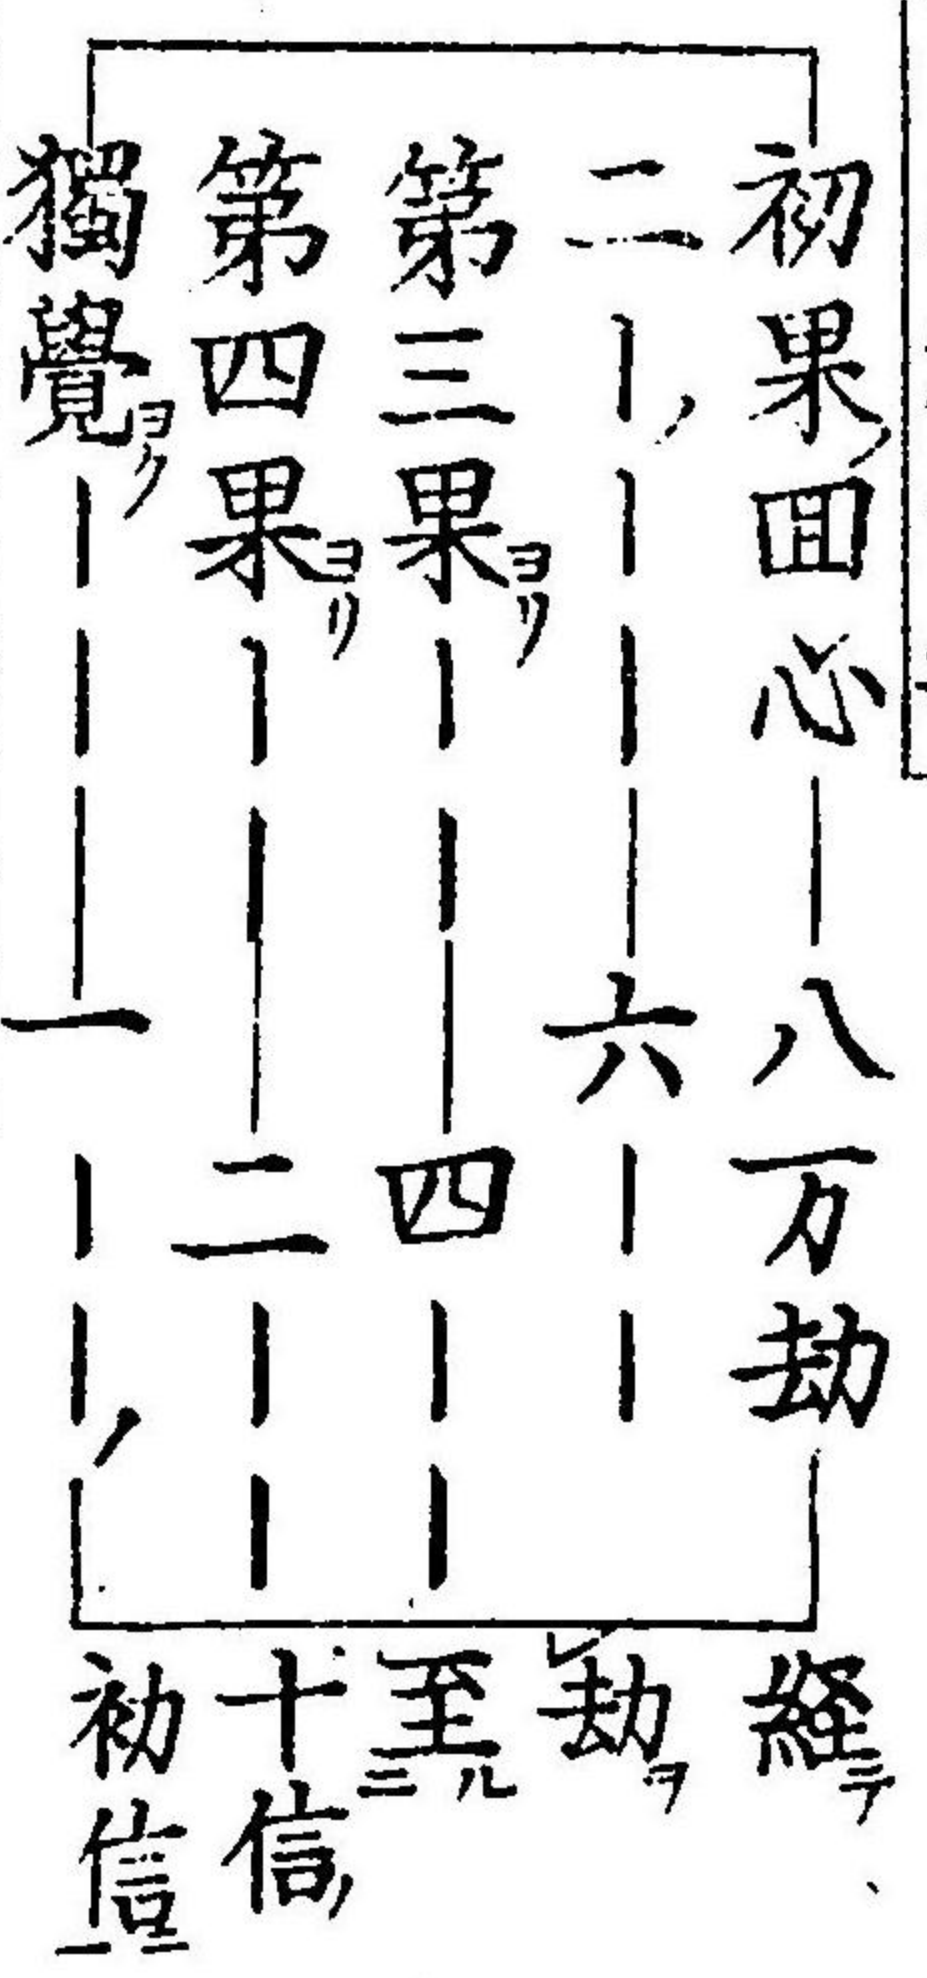 初果ノ回心八万劫
二｜ノ｜｜六｜｜
第三果ヨリ｜｜四｜｜
第四果ヨリ｜｜二｜｜
獨覺ヨク｜｜一｜｜ノ
経テ
劫ヲレ
至ルニ
十信ノ
初信ニ一